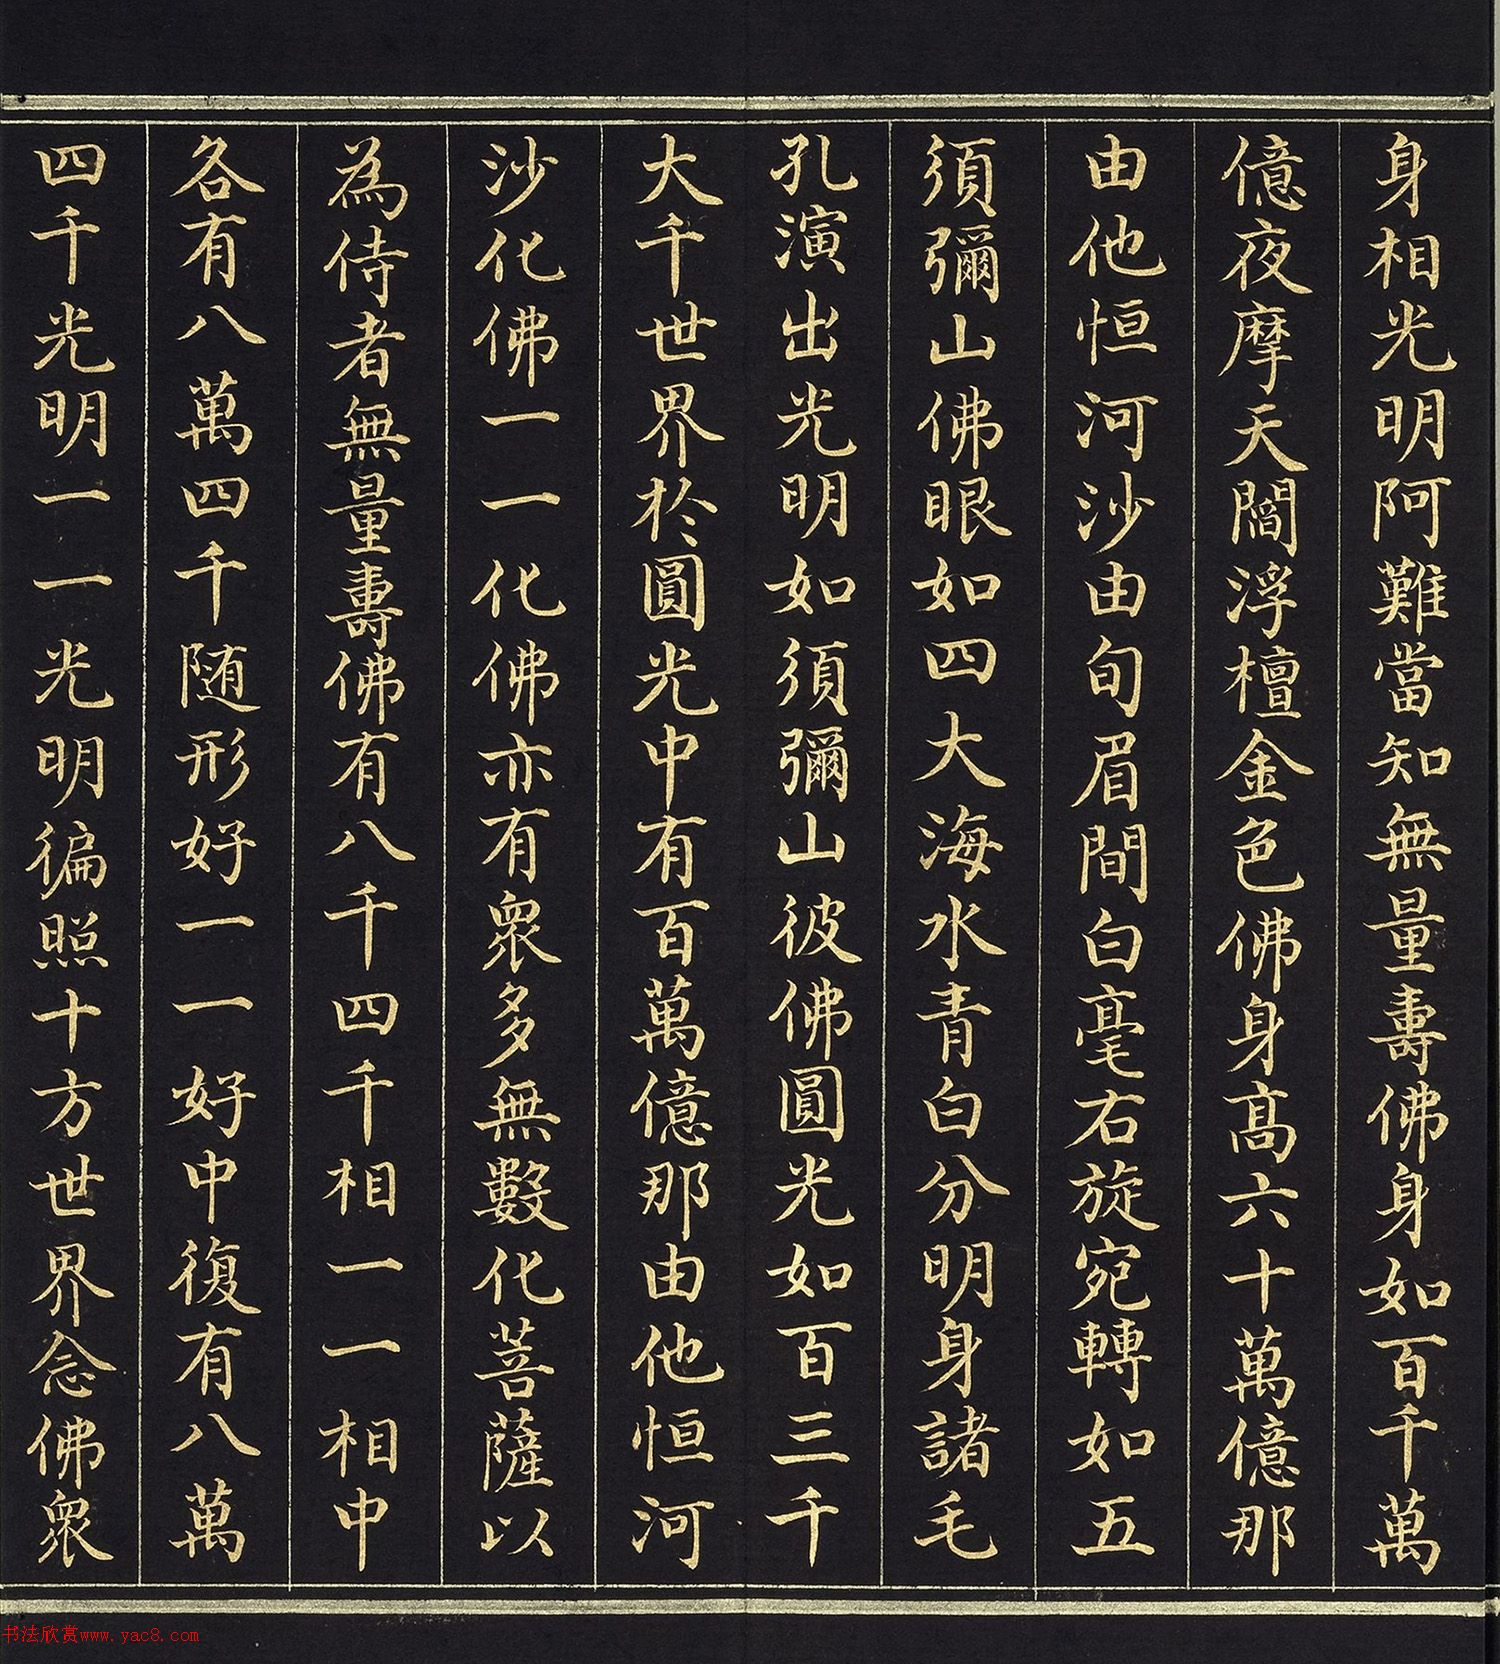 身相光明阿難當知無量壽佛身如百千萬
億夜摩天閻浮檀金色佛身髙六十萬億那
由他恒河沙由旬眉間白毫右旋宛轉如五
須彌山佛眼如四大海水青白分明身諸毛
孔演出光明如須彌山彼佛圓光如百三千
大千世界於圓光中有百萬億那由他恒河
沙化佛一一化佛亦有衆多無數化菩薩以
為侍者無量壽佛有八千四千相一一相中
各有八萬四千随形好一一好中復有八萬
四千光明一一光明徧照十方世界念佛衆
书法欣赏www.yac8.com